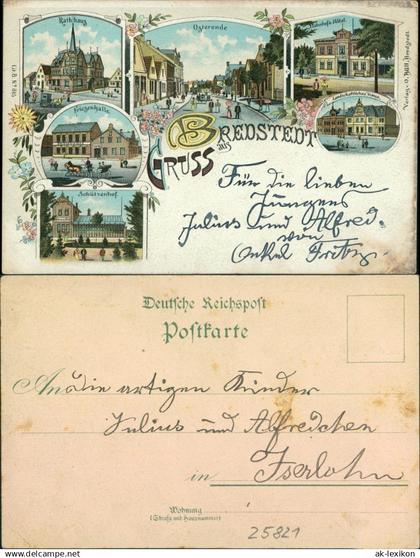 Rathhaus
Osterende
Bahnhofs Hôtel
Friesenhalle
Schützenhof
GRUSS aus BREDSTEDT
Für die lieben
Jungens
Julius und Alfred.
von
Onkel Fritz.
Deutsche Reichspost
Postkarte
An die artigen Kinder
Julius und Alfredchen
in Iserlohn
Wohnung
(Straße und Hausnummer)
25821
https://www.delcampe.net
ak-lexikon